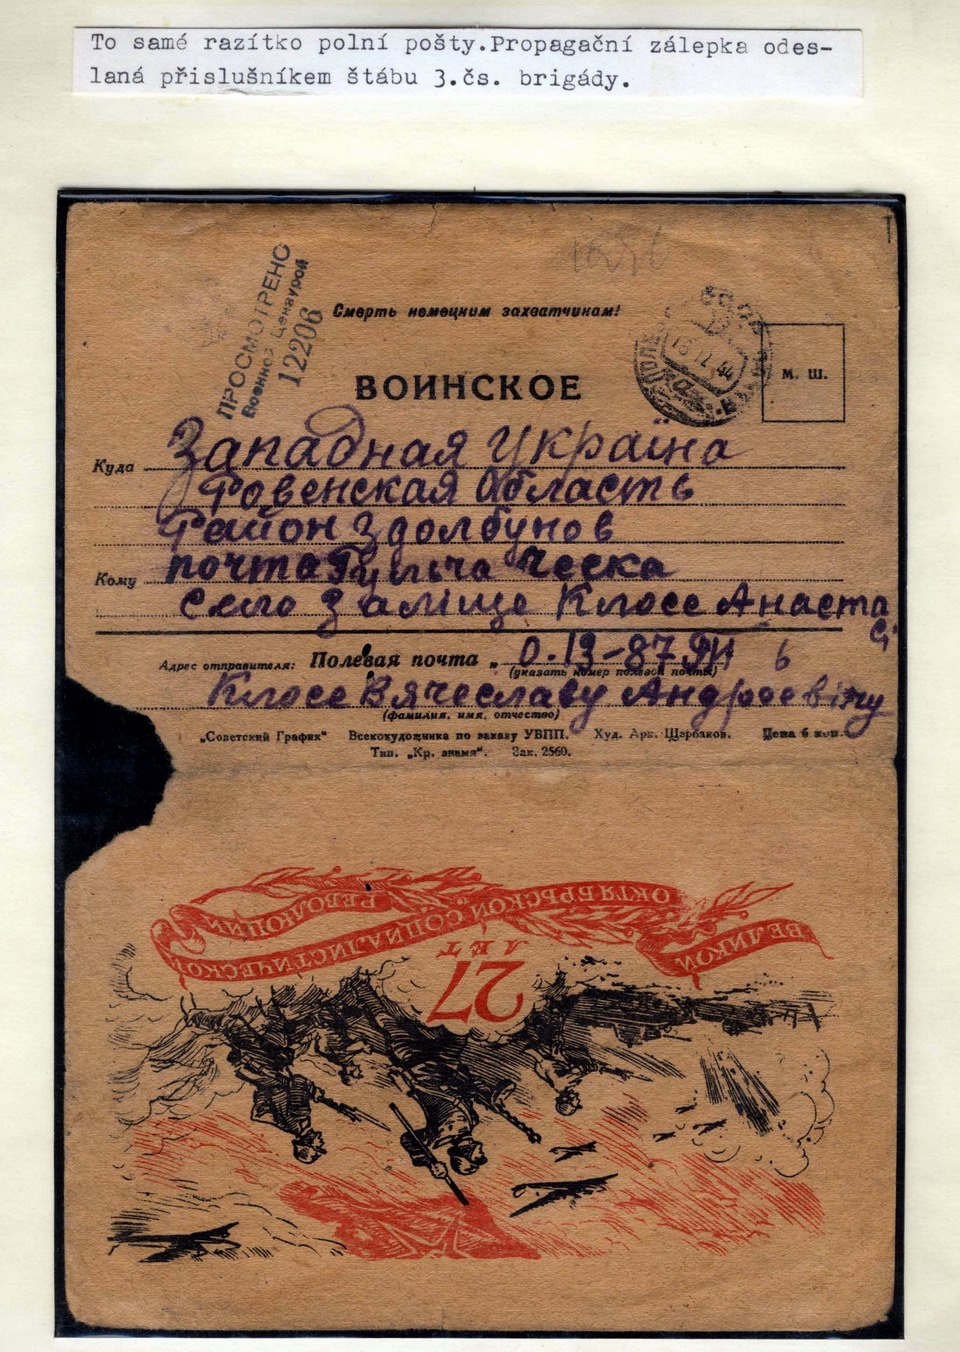 To samé razítko polní pošty.Propagační zálepka odes-
laná příslušníkem štábu 3.čs. brigády.
ПРОСМОТРЕНО
Военной Цензурой
12206
Смерть немецким захватчикам!
ВОИНСКОЕ
М. Ш.
Куда Западная Україна
Ровенская Область
Район Здолбунов
Кому почта Гульча Ческа
Село Заліще Клосе Анаста
Адрес отправителя: Полевая почта „ 0.13-87
(указать номер полевой почты)
Клосе Вячеславу Андроевічу
(фамилия, имя, отчество)
„Советский График" Всекохудожника по заказу УВПП. Худ. Арк. Щербаков. Цена 6 коп.
Тип. „Кр. знамя". Зак. 2560.
ВЕЛИКОЙ ОКТЯБРЬСКОЙ
СОЦИАЛИСТИЧЕСКОЙ РЕВОЛЮЦИИ
27
ЛЕТ